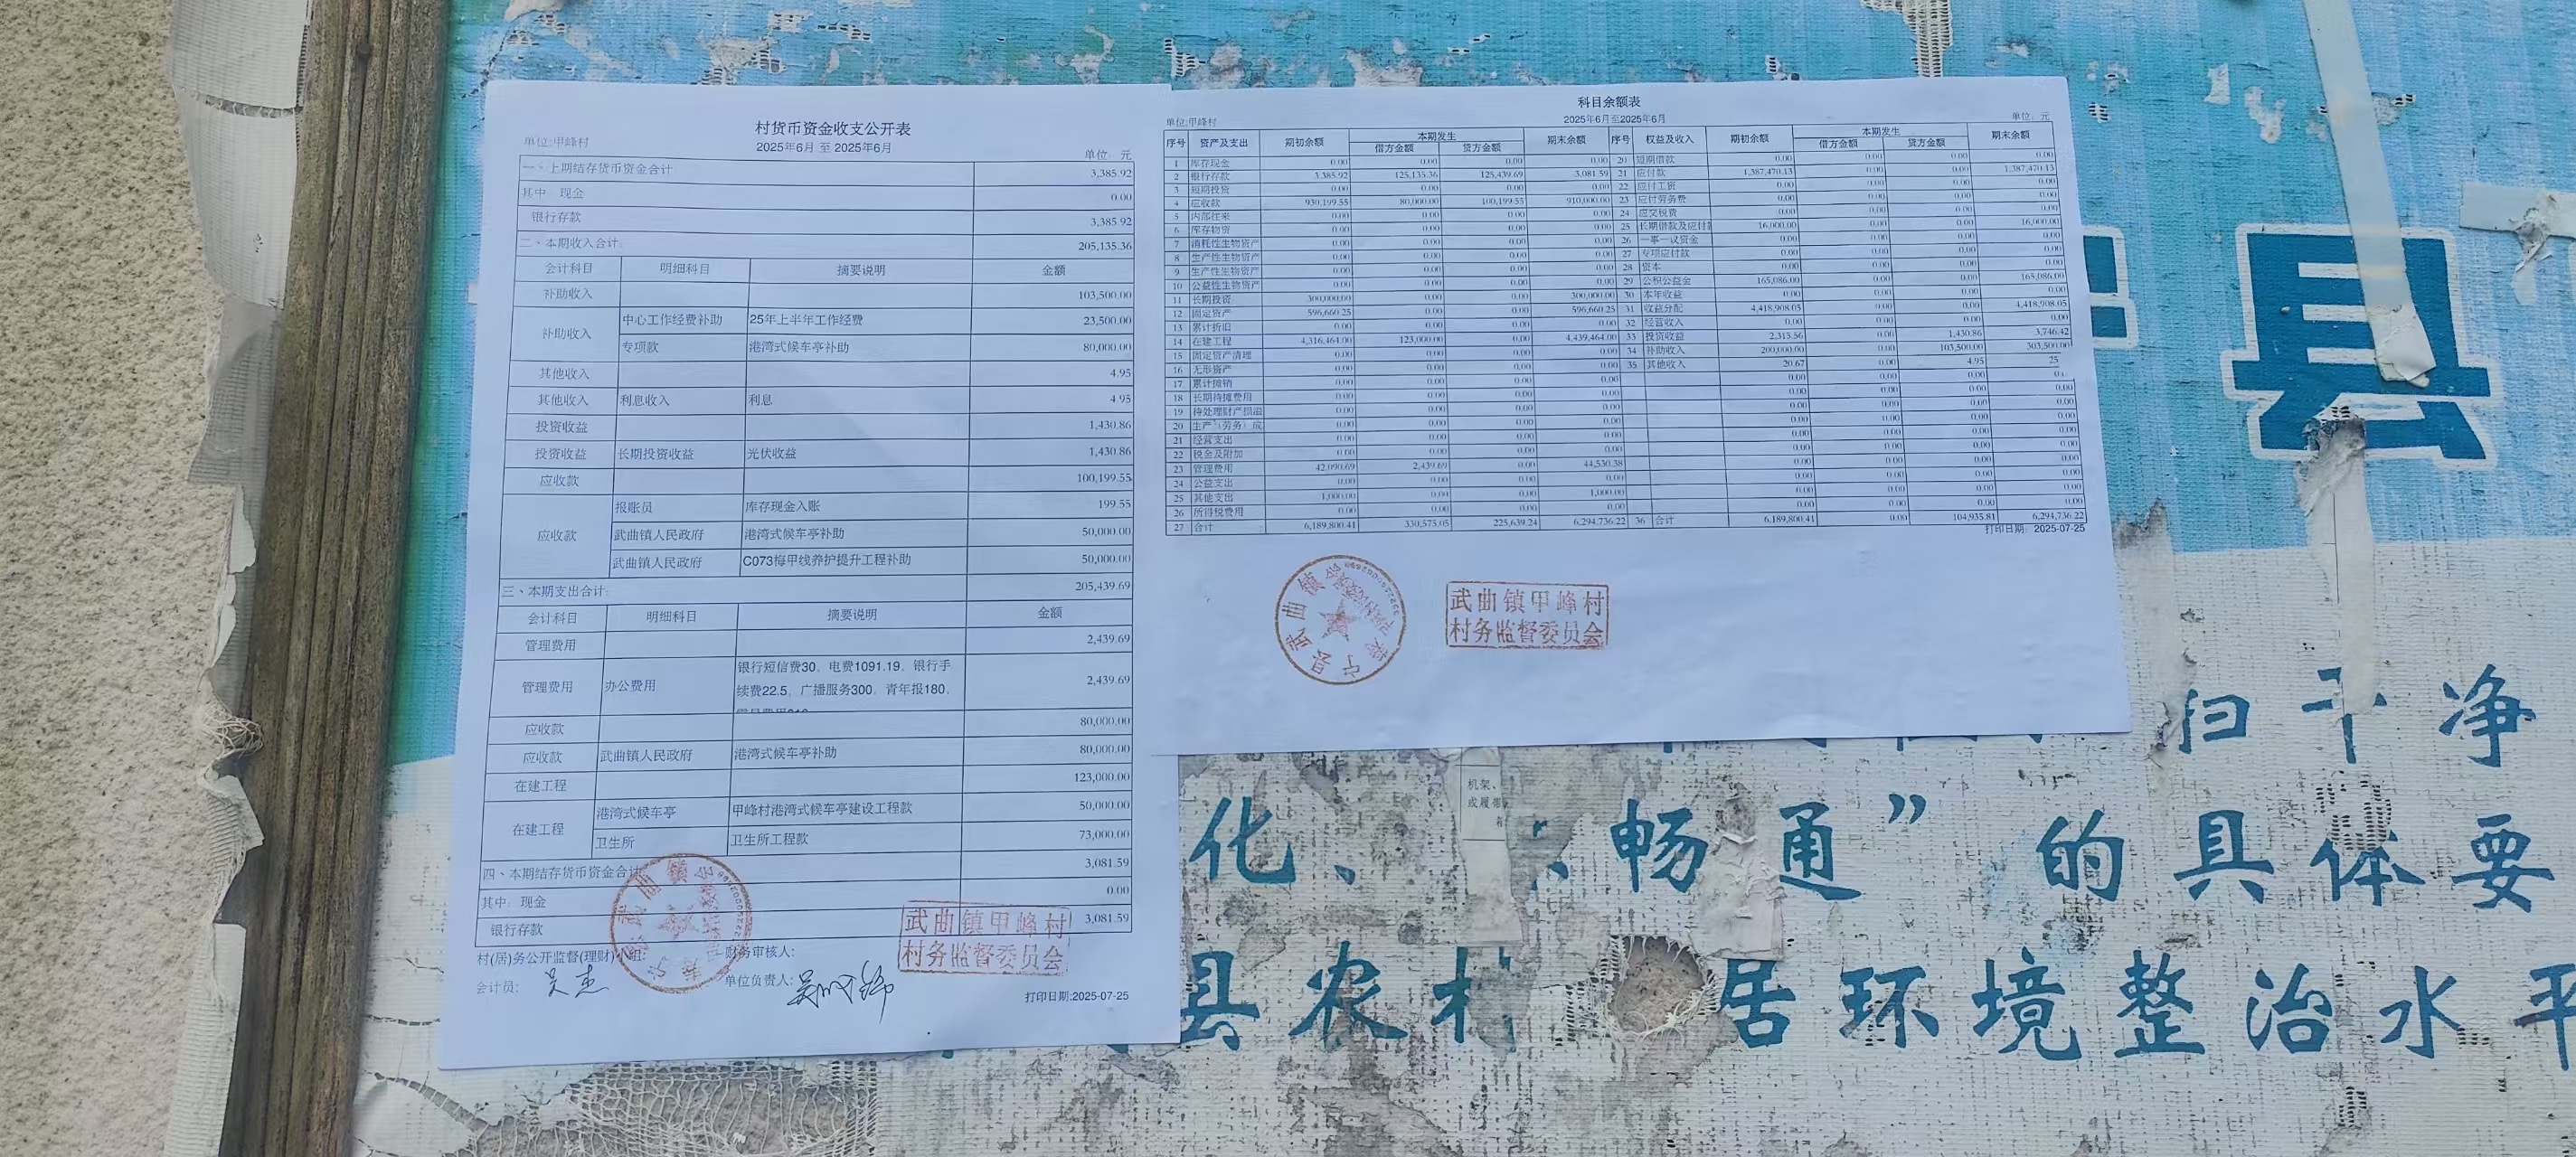 村货币资金收支公开表
单位:甲峰村 2025年6月 至 2025年6月 单位: 元
一、上期结存货币资金合计: 3,385.92
其中: 现金 0.00
银行存款 3,385.92
二、本期收入合计: 205,135.36
会计科目 明细科目 摘要说明 金额
补助收入 103,500.00
补助收入 中心工作经费补助 25年上半年工作经费 23,500.00
专项款 港湾式候车亭补助 80,000.00
其他收入 4.95
其他收入 利息收入 利息 4.95
投资收益 1,430.86
投资收益 长期投资收益 光伏收益 1,430.86
应收款 100,199.55
应收款 报账员 库存现金入账 199.55
武曲镇人民政府 港湾式候车亭补助 50,000.00
武曲镇人民政府 C073梅甲线养护提升工程补助 50,000.00
三、本期支出合计: 205,439.69
会计科目 明细科目 摘要说明 金额
管理费用 2,439.69
管理费用 办公费用 银行短信费30，电费1091.19，银行手 2,439.69
续费22.5，广播服务300，青年报180，
应收款 80,000.00
应收款 武曲镇人民政府 港湾式候车亭补助 80,000.00
在建工程 123,000.00
在建工程 港湾式候车亭 甲峰村港湾式候车亭建设工程款 50,000.00
卫生所 卫生所工程款 73,000.00
四、本期结存货币资金合计 3,081.59
其中: 现金 0.00
银行存款 3,081.59
村(居)务公开监督(理财)小组: 财务审核人:
会计员: 吴杰 单位负责人:
打印日期:2025-07-25
武曲镇甲峰村
村务监督委员会
科目余额表
单位:甲峰村 2025年6月至2025年6月 单位: 元
序号 资产及支出 期初余额 本期发生 期末余额 序号 权益及收入 期初余额 本期发生 期末余额
借方金额 贷方金额 借方金额 贷方金额
1 库存现金 0.00 0.00 0.00 0.00 20 短期借款 0.00 0.00 0.00 0.00
2 银行存款 3,385.92 125,135.36 125,439.69 3,081.59 21 应付款 1,387,470.13 0.00 0.00 1,387,470.13
3 短期投资 0.00 0.00 0.00 0.00 22 应付工资 0.00 0.00 0.00 0.00
4 应收款 930,199.55 80,000.00 100,199.55 910,000.00 23 应付劳务费 0.00 0.00 0.00 0.00
5 内部往来 0.00 0.00 0.00 0.00 24 应交税费 0.00 0.00 0.00 0.00
6 库存物资 0.00 0.00 0.00 0.00 25 长期借款及应付 16,000.00 0.00 0.00 16,000.00
7 消耗性生物资产 0.00 0.00 0.00 0.00 26 一事一议资金 0.00 0.00 0.00 0.00
8 生产性生物资产 0.00 0.00 0.00 0.00 27 专项应付款 0.00 0.00 0.00 0.00
9 生产性生物资产 0.00 0.00 0.00 0.00 28 资本 0.00 0.00 0.00 0.00
10 公益性生物资产 0.00 0.00 0.00 0.00 29 公积公益金 165,086.00 0.00 0.00 165,086.00
11 长期投资 300,000.00 0.00 0.00 300,000.00 30 本年收益 0.00 0.00 0.00 0.00
12 固定资产 596,660.25 0.00 0.00 596,660.25 31 收益分配 4,418,908.05 0.00 0.00 4,418,908.05
13 累计折旧 0.00 0.00 0.00 0.00 32 经营收入 0.00 0.00 0.00 0.00
14 在建工程 4,316,464.00 123,000.00 0.00 4,439,464.00 33 投资收益 2,315.56 0.00 1,430.86 3,746.42
15 固定资产清理 0.00 0.00 0.00 0.00 34 补助收入 200,000.00 0.00 103,500.00 303,500.00
16 无形资产 0.00 0.00 0.00 0.00 35 其他收入 20.67 0.00 4.95 25
17 累计摊销 0.00 0.00 0.00 0.00 0.00 0.00 0.00
18 长期待摊费用 0.00 0.00 0.00 0.00 0.00 0.00 0.00 0.00
19 待处理财产损溢 0.00 0.00 0.00 0.00 0.00 0.00 0.00 0.00
20 生产(劳务)成 0.00 0.00 0.00 0.00 0.00 0.00 0.00 0.00
21 经营支出 0.00 0.00 0.00 0.00 0.00 0.00 0.00 0.00
22 税金及附加 0.00 0.00 0.00 0.00 0.00 0.00 0.00 0.00
23 管理费用 42,090.69 2,439.69 0.00 44,530.38 0.00 0.00 0.00 0.00
24 公益支出 0.00 0.00 0.00 0.00 0.00 0.00 0.00 0.00
25 其他支出 1,000.00 0.00 0.00 1,000.00 0.00 0.00 0.00 0.00
26 所得税费用 0.00 0.00 0.00 0.00 0.00 0.00 0.00 0.00
27 合计 6,189,800.41 330,575.05 225,639.24 6,294,736.22 36 合计 6,189,800.41 0.00 104,935.81 6,294,736.22
打印日期: 2025-07-25
武曲镇甲峰村
村务监督委员会
县
扫干净
机架、
成履带
化、畅通”的具体要
县农村 居环境整治水平